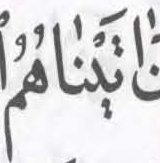 اٰتَيْنَاهُمُ